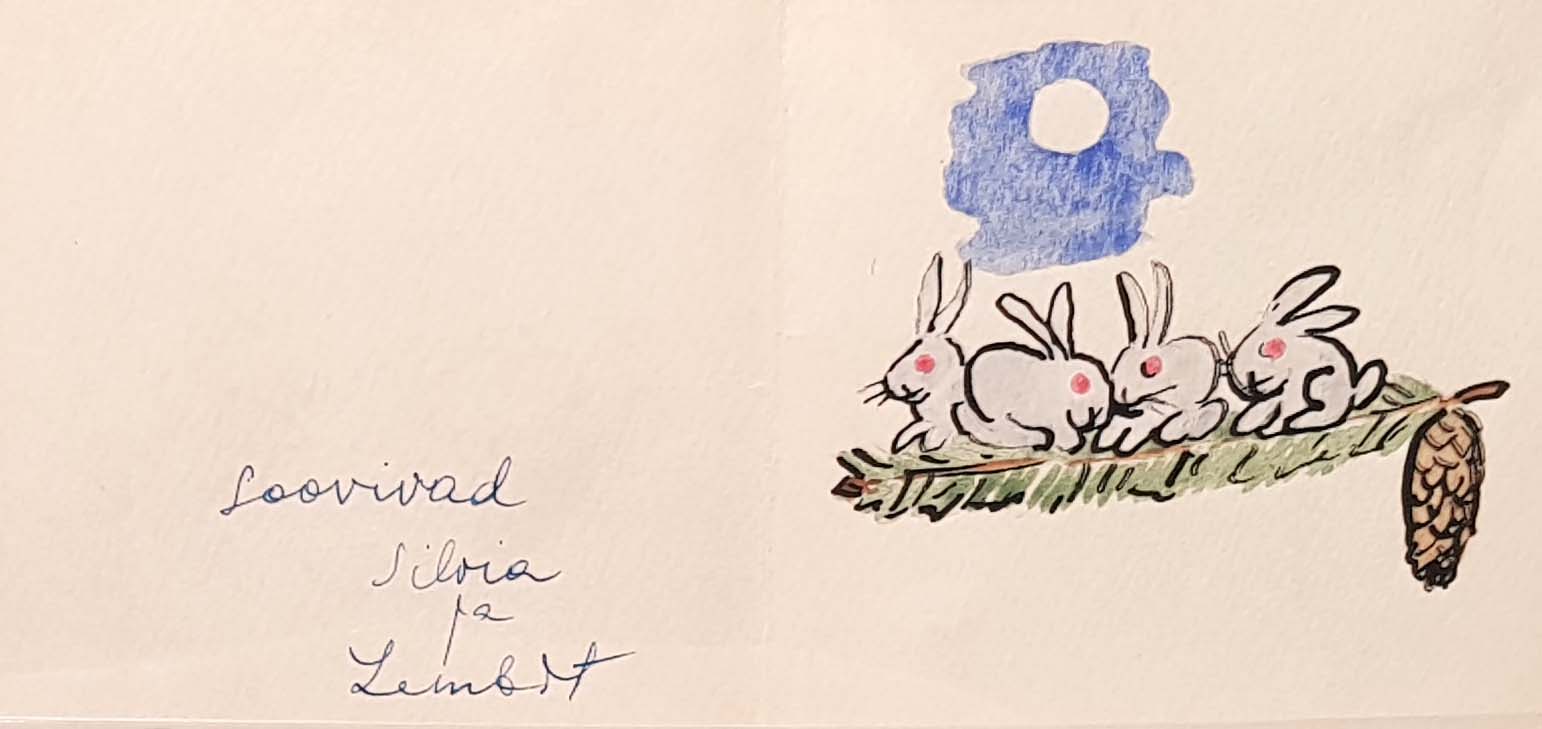 soovivad
Silvia
ja
Lembit